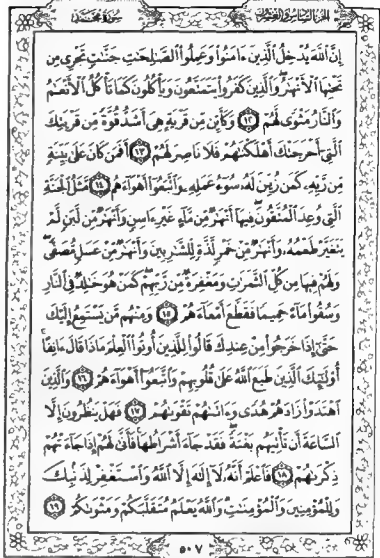 سورة محمد
الجزء السادس والعشرون
إِنَّ ٱللَّهَ يُدۡخِلُ ٱلَّذِينَ ءَامَنُواْ وَعَمِلُواْ ٱلصَّٰلِحَٰتِ جَنَّٰتٖ تَجۡرِي مِن
تَحۡتِهَا ٱلۡأَنۡهَٰرُۖ وَٱلَّذِينَ كَفَرُواْ يَتَمَتَّعُونَ وَيَأۡكُلُونَ كَمَا تَأۡكُلُ ٱلۡأَنۡعَٰمُ
وَٱلنَّارُ مَثۡوٗى لَّهُمۡ ١٢ وَكَأَيِّن مِّن قَرۡيَةٍ هِيَ أَشَدُّ قُوَّةٗ مِّن قَرۡيَتِكَ
ٱلَّتِيٓ أَخۡرَجَتۡكَ أَهۡلَكۡنَٰهُمۡ فَلَا نَاصِرَ لَهُمۡ ١٣ أَفَمَن كَانَ عَلَىٰ بَيِّنَةٖ
مِّن رَّبِّهِۦ كَمَن زُيِّنَ لَهُۥ سُوٓءُ عَمَلِهِۦ وَٱتَّبَعُوٓاْ أَهۡوَآءَهُم ١٤ مَّثَلُ ٱلۡجَنَّةِ
ٱلَّتِي وُعِدَ ٱلۡمُتَّقُونَۖ فِيهَآ أَنۡهَٰرٞ مِّن مَّآءٍ غَيۡرِ ءَاسِنٖ وَأَنۡهَٰرٞ مِّن لَّبَنٖ لَّمۡ
يَتَغَيَّرۡ طَعۡمُهُۥ وَأَنۡهَٰرٞ مِّنۡ خَمۡرٖ لَّذَّةٖ لِّلشَّٰرِبِينَ وَأَنۡهَٰرٞ مِّنۡ عَسَلٖ مُّصَفّٗىۖ
وَلَهُمۡ فِيهَا مِن كُلِّ ٱلثَّمَرَٰتِ وَمَغۡفِرَةٞ مِّن رَّبِّهِمۡۖ كَمَنۡ هُوَ خَٰلِدٞ فِي ٱلنَّارِ
وَسُقُواْ مَآءً حَمِيمٗا فَقَطَّعَ أَمۡعَآءَهُمۡ ١٥ وَمِنۡهُم مَّن يَسۡتَمِعُ إِلَيۡكَ
حَتَّىٰٓ إِذَا خَرَجُواْ مِنۡ عِندِكَ قَالُواْ لِلَّذِينَ أُوتُواْ ٱلۡعِلۡمَ مَاذَا قَالَ ءَانِفًاۚ
أُوْلَٰٓئِكَ ٱلَّذِينَ طَبَعَ ٱللَّهُ عَلَىٰ قُلُوبِهِمۡ وَٱتَّبَعُوٓاْ أَهۡوَآءَهُمۡ ١٦ وَٱلَّذِينَ
ٱهۡتَدَوۡاْ زَادَهُمۡ هُدٗى وَءَاتَىٰهُمۡ تَقۡوَىٰهُمۡ ١٧ فَهَلۡ يَنظُرُونَ إِلَّا
ٱلسَّاعَةَ أَن تَأۡتِيَهُم بَغۡتَةٗۖ فَقَدۡ جَآءَ أَشۡرَاطُهَاۚ فَأَنَّىٰ لَهُمۡ إِذَا جَآءَتۡهُمۡ
ذِكۡرَىٰهُمۡ ١٨ فَٱعۡلَمۡ أَنَّهُۥ لَآ إِلَٰهَ إِلَّا ٱللَّهُ وَٱسۡتَغۡفِرۡ لِذَنۢبِكَ
وَلِلۡمُؤۡمِنِينَ وَٱلۡمُؤۡمِنَٰتِۗ وَٱللَّهُ يَعۡلَمُ مُتَقَلَّبَكُمۡ وَمَثۡوَىٰكُمۡ ١٩
٥٠٧